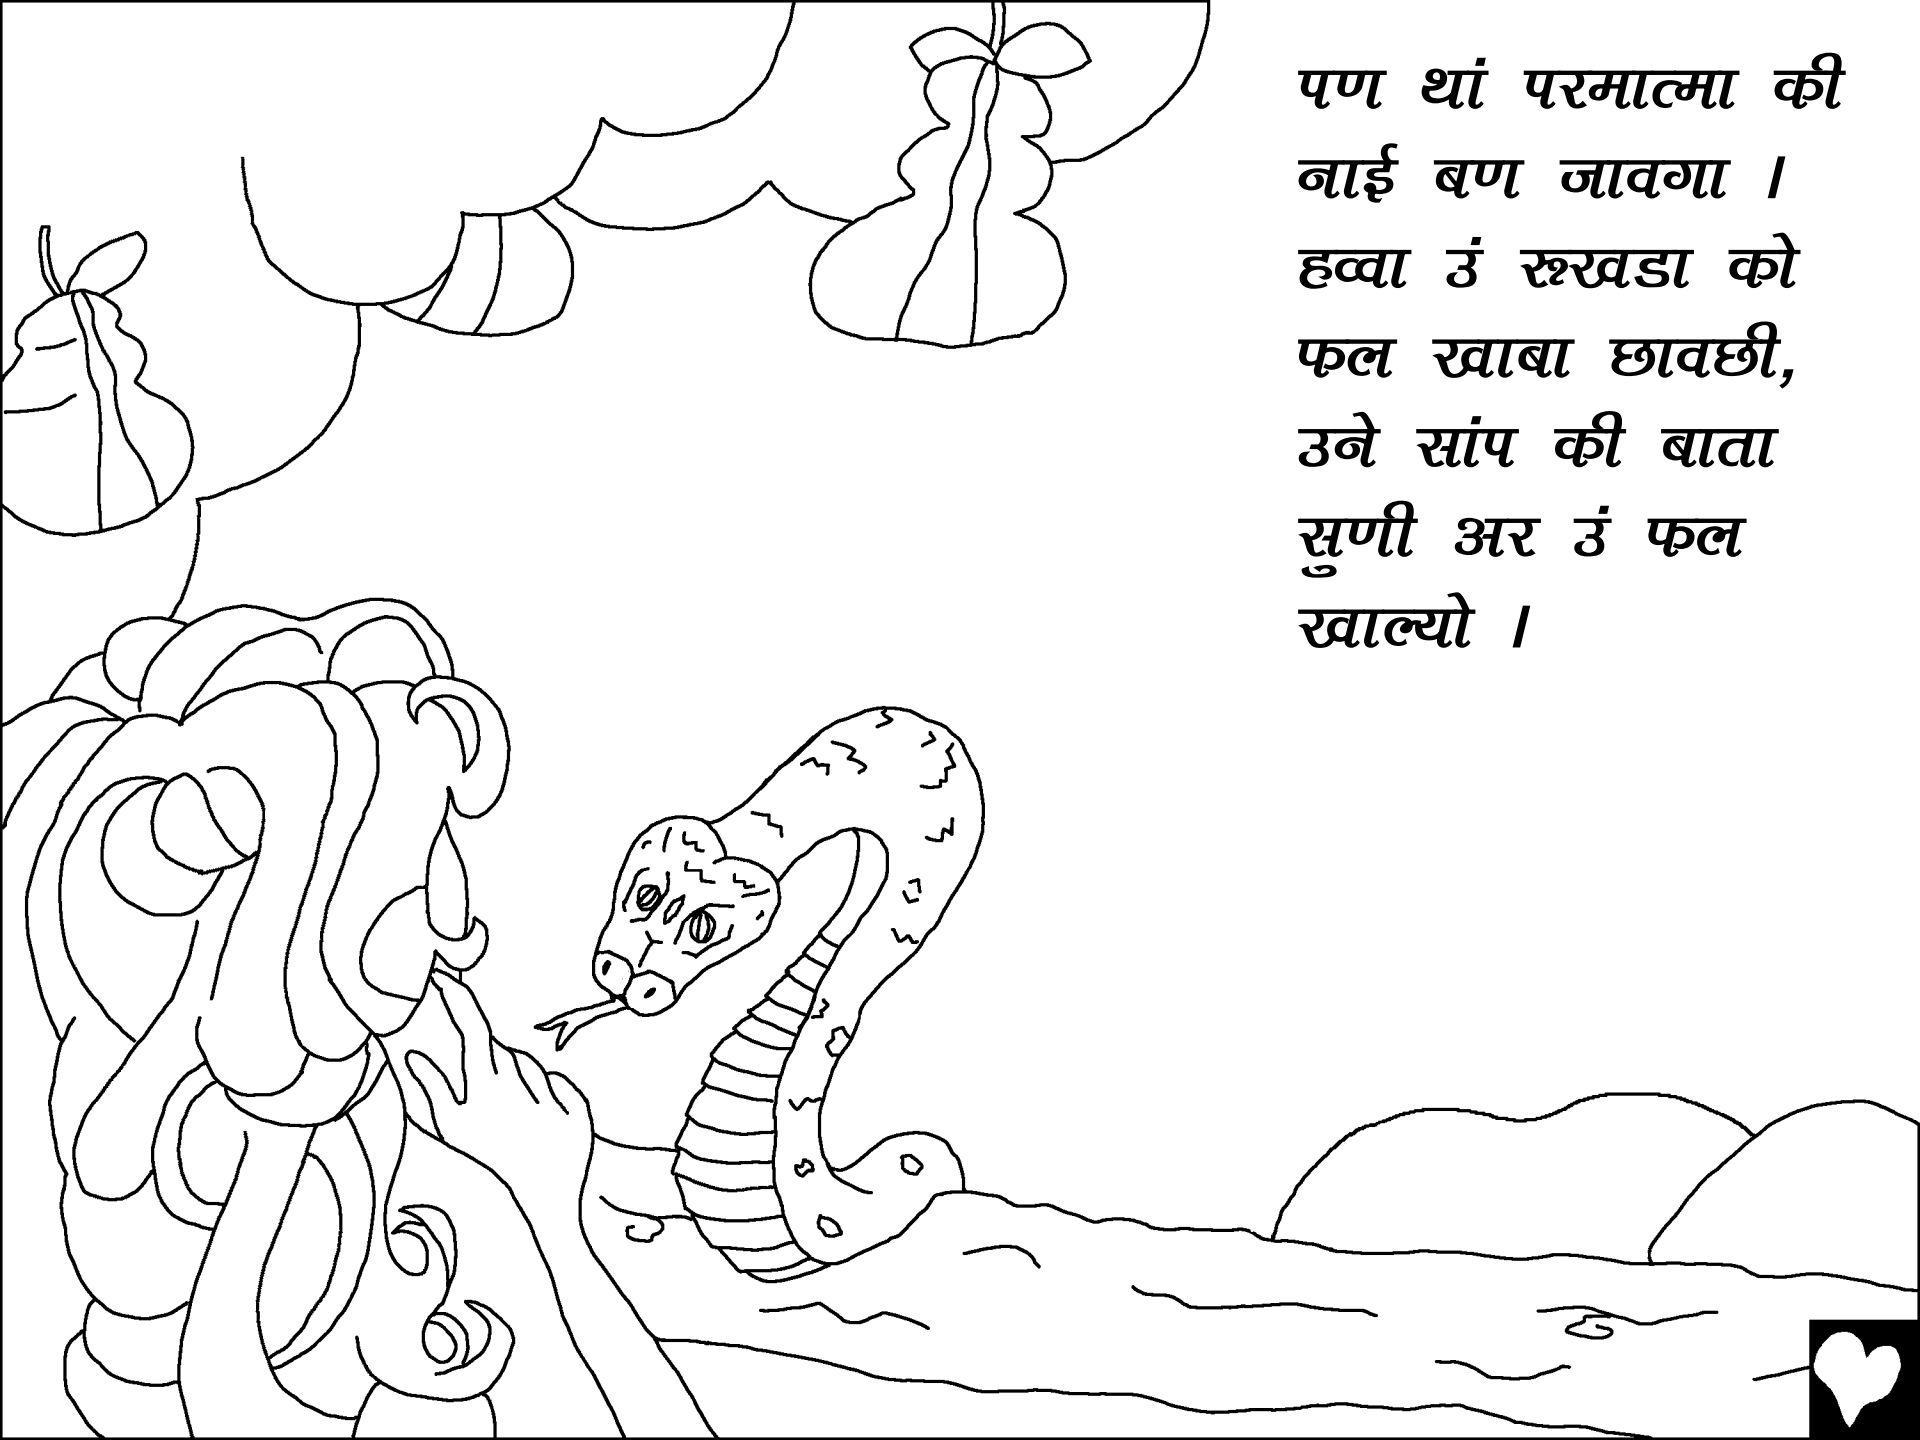 पण थां परमात्मा की
नाई बण जावगा ।
हव्वा उं रूखडा को
फल खाबा छावछी,
उने सांप की बाता
सुणी अर उं फल
खाल्यो ।